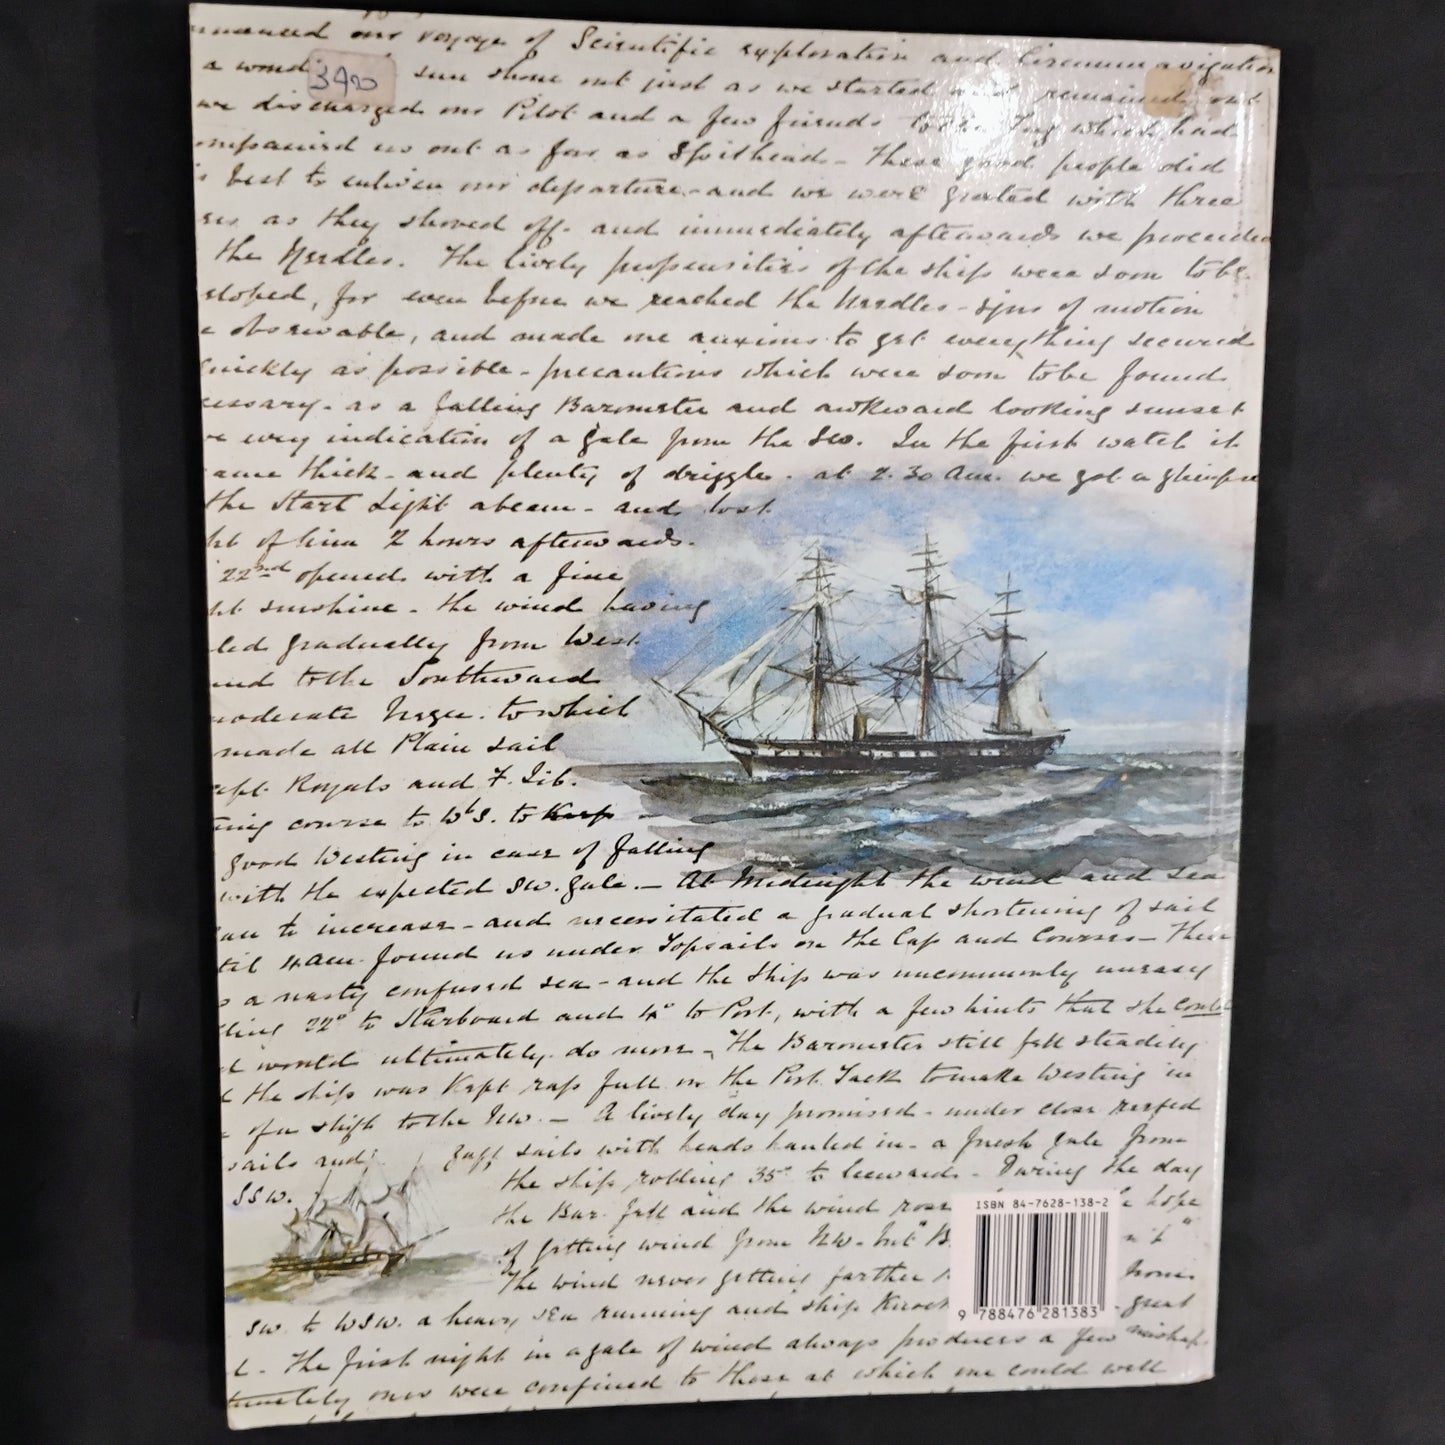 our voyage of Scientific exploration and Circumnavigation
3400
a sun shone out just as we started and remained out
we discharged our Pilot and a few friends to the Tug which had
us out as far as Spithead - These good people did
best to enliven our departure - and we were greeted with three
as they shoved off - and immediately afterwards we proceeded
the Needles. The lively propensities of the ship were soon to be
for even before we reached the Needles - signs of motion
observable, and made me anxious to get everything secured
quickly as possible - precautions which were soon to be found
as a falling Barometer and awkward looking sunset
every indication of a gale from the SW. In the first watch it
came thick - and plenty of drizzle - at 2.30 am. we got a glimpse
the Start Light abeam - and lost
of him 2 hours afterwards.
22nd opened with a fine
sunshine - the wind having
gradually from West
to the Southward
moderate to which
made all Plain sail
Royals and F. Jib.
course to WbS. to Keep
good Westing in case of falling
with the expected SW. gale. - At Midnight the wind and sea
to increase - and necessitated a gradual shortening of sail
4 am found us under Topsails on the Cap and Courses - There
a nasty confused sea - and the Ship was uncommonly uneasy
22° to Starboard and 4° to Port, with a few hints that she could
would ultimately do more - The Barometer still fell steadily
the ship was Kept rap full on the Port Tack to make Westing in
of a shift to the NW. - A lively day promised - under close reefed
sails and gaff sails with heads hauled in - a fresh gale from
SSW. the ship rolling 35° to leeward - During the day
the Bar. fell and the wind rose hope
of getting wind from NW - but
The wind never getting farther
SW. to WSW. a heavy sea running and ship great
The first night in a gale of wind always produces a few mishaps
ours were confined to those at which one could well
ISBN 84-7628-138-2
9 788476 281383